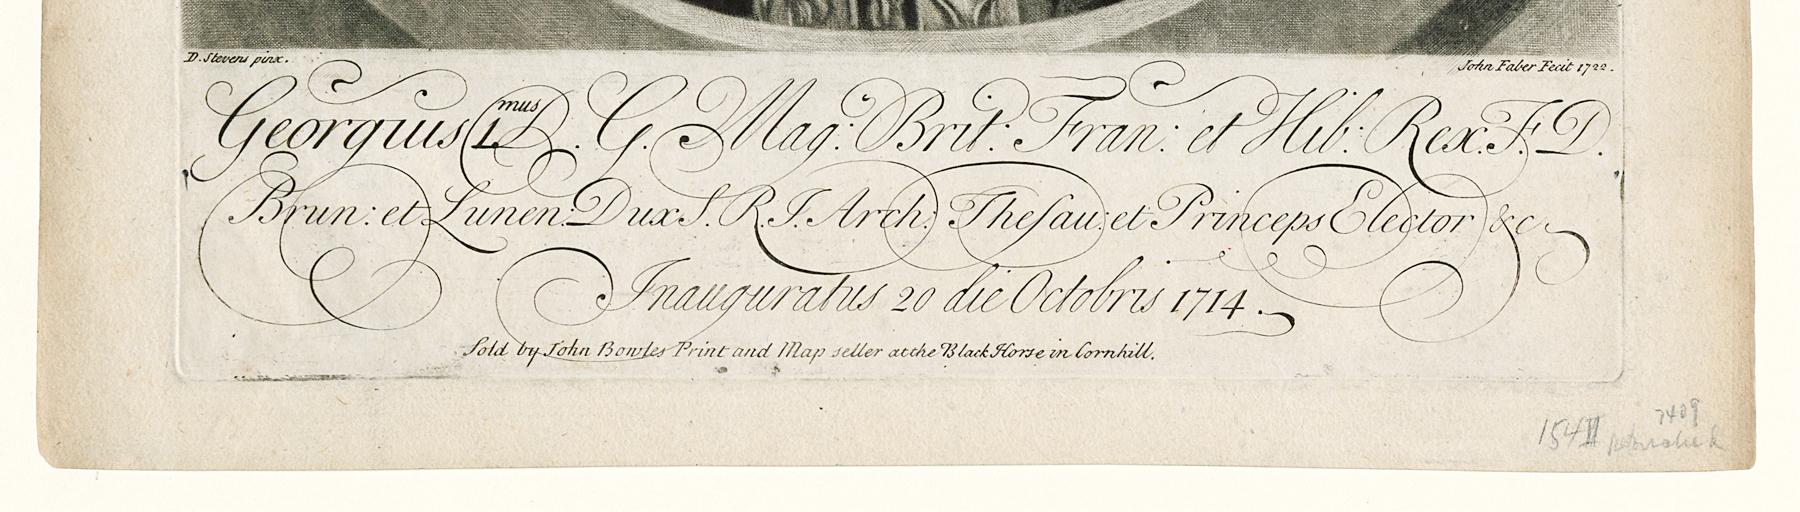 D. Stevens pinx.
John Faber Fecit 1722.
Georgius 1mus D. G. Mag: Brit: Fran: et Hib: Rex. F. D.
Brun: et Lunen: Dux S. R. I. Arch: Thesau: et Princeps Elector &c
Inauguratus 20 die Octobris 1714.
Sold by John Bowles Print and Map seller at the Black Horse in Cornhill.
154 II
7409